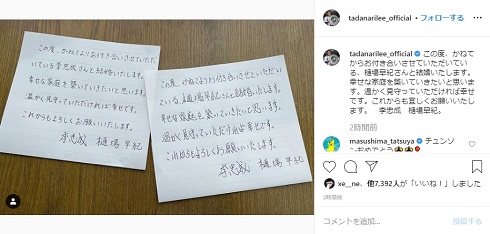 この度、かねてよりお付き合いさせていただ
いている李忠成さんと結婚いたします。
幸せな家庭を築いていきたいと思います。
温かく見守っていただければ幸せです。
これからもよろしくお願いいたします。
李忠成 樋場早紀
この度、かねてよりお付き合いさせていただいて
いる、樋場早紀さんと結婚いたします。
幸せな家庭を築いていきたいと思います。
温かく見守っていただければ幸せです。
これからもよろしくお願いいたします。
李忠成 樋場早紀
tadanarilee_official • フォローする
tadanarilee_official この度、かね
てからお付き合いさせていただいて
いる、樋場早紀さんと結婚いたします。
幸せな家庭を築いていきたいと思いま
す。温かく見守っていただければ幸
せです。これからも宜しくお願いいた
します。 李忠成 樋場早紀。
2時間前
masushima_tatsuya チュンソ
ンおめでとう
xe__ne、他7,392人が「いいね！」しました
2時間前
コメントを追加... 投稿する